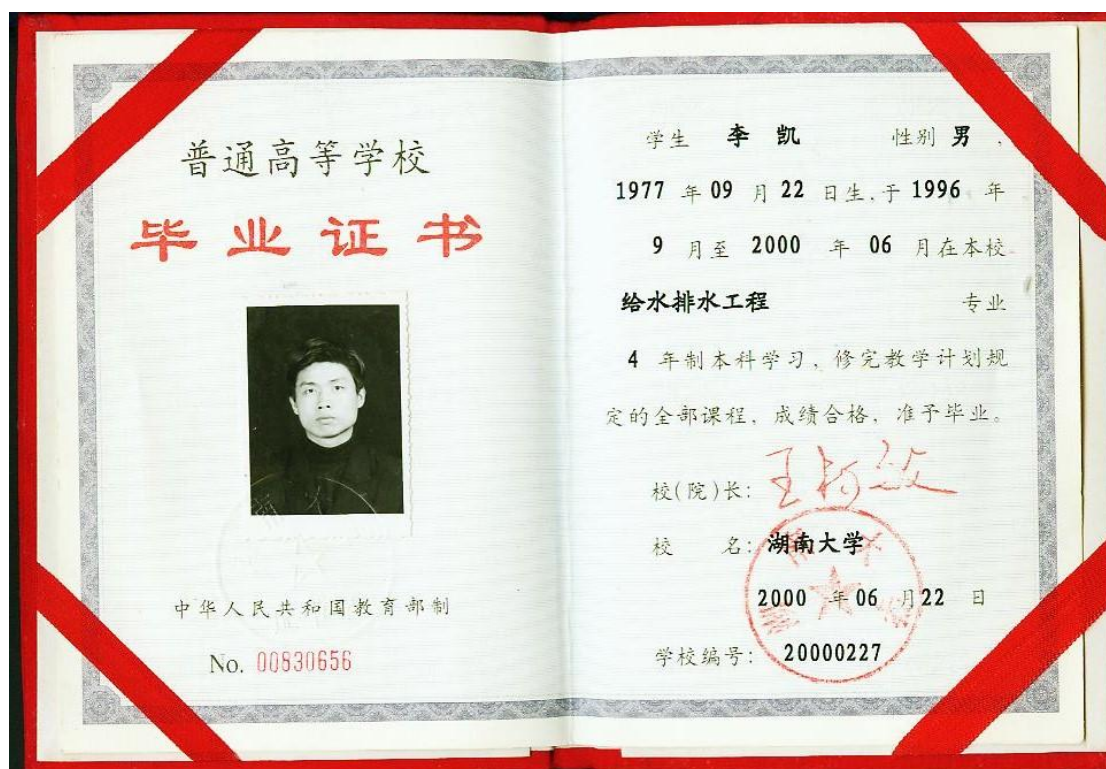 普通高等学校
毕业证书
中华人民共和国教育部制
No. 00830656
学生 李凯 性别 男,
1977 年 09 月 22 日生,于 1996 年
9 月至 2000 年 06 月在本校
给水排水工程 专业
4 年制本科学习,修完教学计划规
定的全部课程,成绩合格,准予毕业。
校(院)长:
校 名: 湖南大学
2000 年 06 月 22 日
学校编号: 20000227